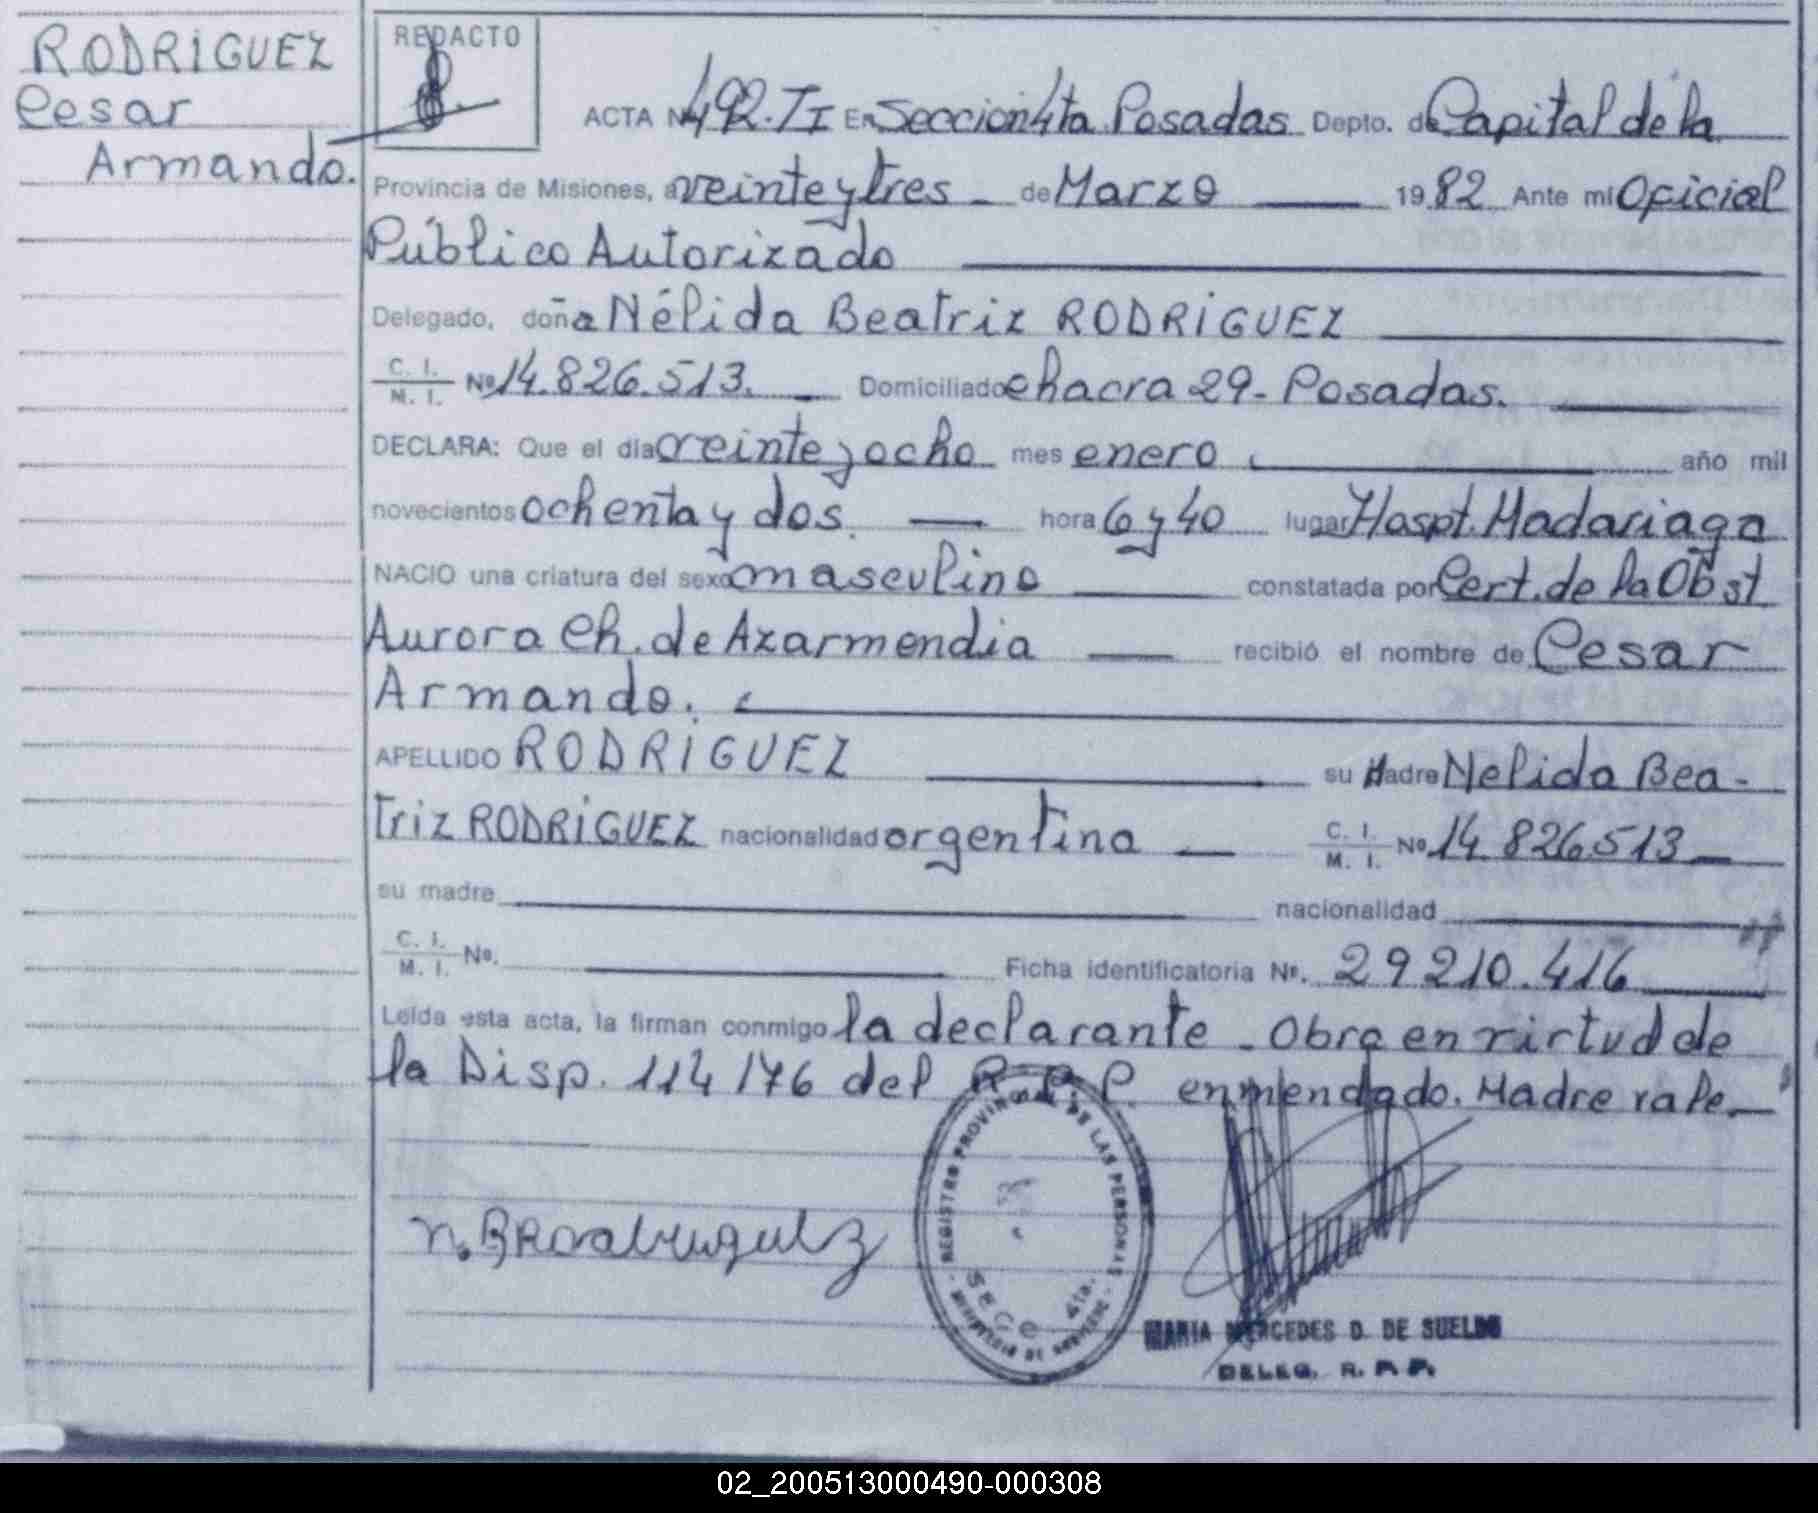 RODRIGUEZ
Cesar
Armando.
REDACTO
ACTA Nº 492.TI En Seccion 4ta. Posadas Depto. de Capital de la
Provincia de Misiones, a veinte y tres de Marzo 1982 Ante mi Oficial
Público Autorizado
Delegado, doña Nélida Beatriz RODRIGUEZ
C. I. / M. I. Nº 14.826.513. Domiciliado chacra 29- Posadas.
DECLARA: Que el día veinte y ocho mes enero año mil
novecientos ochenta y dos. hora 6 y 40 lugar Hospt. Madariaga
NACIO una criatura del sexo masculino constatada por Cert. de la Obst
Aurora Ch. de Azarmendia recibió el nombre de Cesar
Armando.
APELLIDO RODRIGUEZ su Madre Nelida Bea-
triz RODRIGUEZ nacionalidad argentina C. I. / M. I. Nº 14.826513
su madre nacionalidad
C. I. / M. I. Nº.
Ficha identificatoria Nº. 29210.416
Leída esta acta, la firman conmigo la declarante - Obra en virtud de
la Disp. 114/76 del R. P. P. enmendado. Madre vale
N. B Rodriguez
REGISTRO PROVINCIAL DE LAS PERSONAS
SECC 4ta.
MARIA MERCEDES D. DE SUELDO
DELEG. R. P. P.
02_200513000490-000308